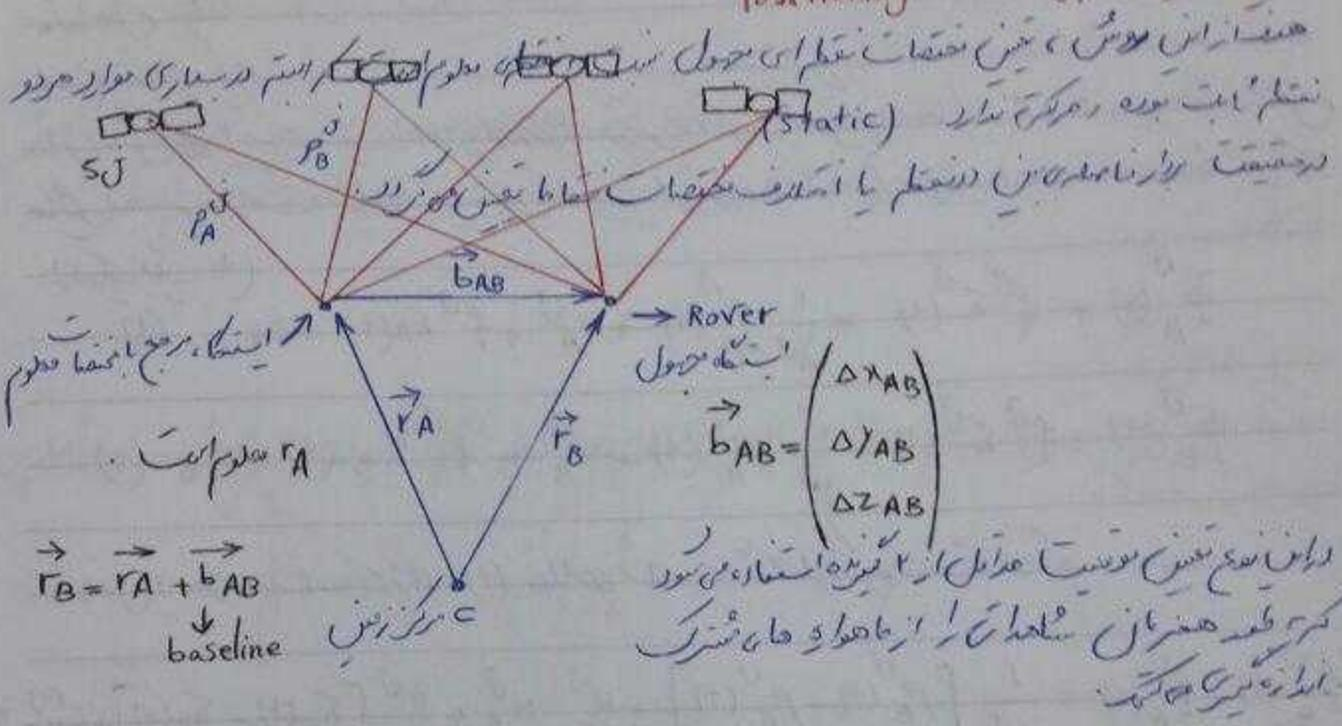 Positioning
هدف از این روش، تعیین مختصات نقطه ای مجهول نسبت به نقطه ای معلوم است که البته در بسیاری موارد هر دو
نقطه ثابت بوده و حرکتی ندارد (static)
در حقیقت بردار فاصله ی بین دو نقطه یا اختلاف مختصات نقاط تعیین می گردد.
Sj
ρ_A^j
ρ_B^j
b_AB
ایستگاه مرجع با مختصات معلوم
→ Rover
ایستگاه مجهول
r_A
r_B
b_AB = (ΔX_AB
ΔY_AB
ΔZ_AB)
r_A معلوم است.
r_B = r_A + b_AB
↓
baseline
C مرکز زمین
در این نوع تعیین موقعیت حداقل از ۲ گیرنده استفاده می شود
که به طور همزمان مشاهداتی را از ماهواره های مشترک
اندازه گیری می کنند.